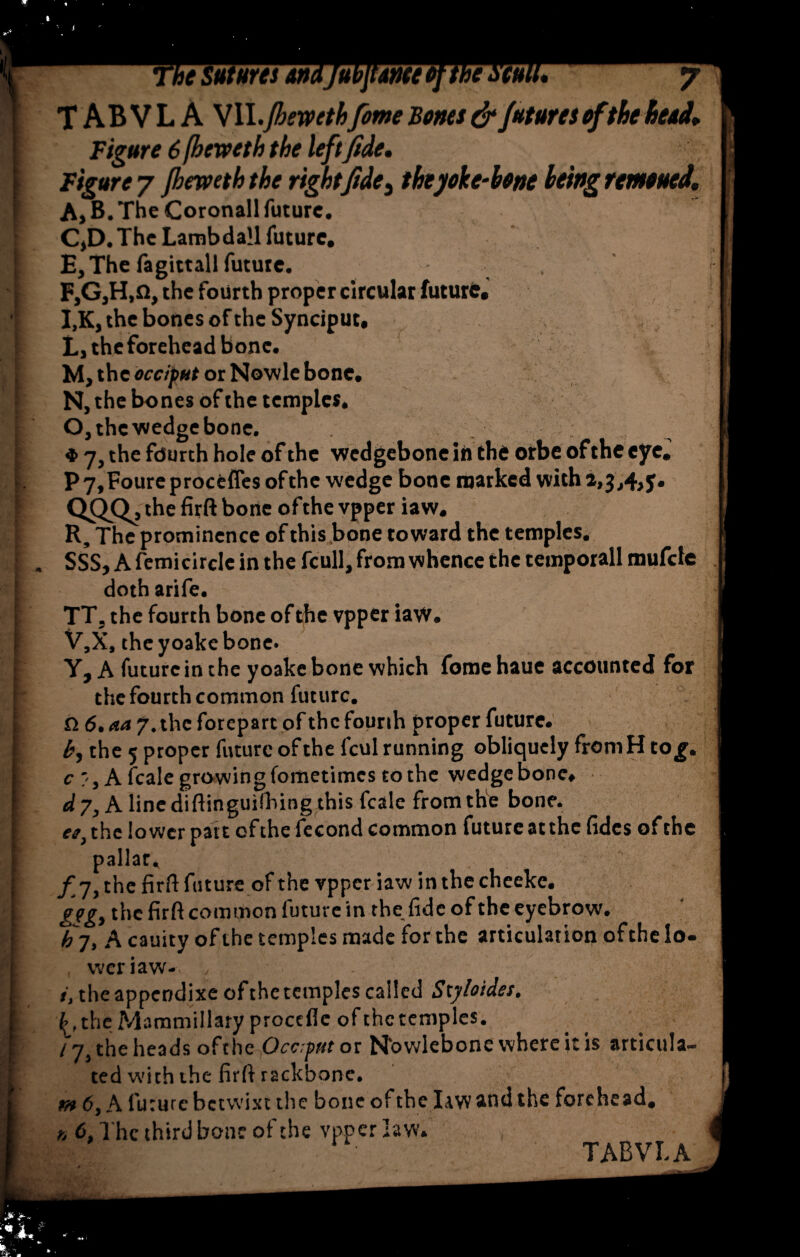 The Sutures and ſubſtance of the Scull. 7
TABVLA VII. ſheweth ſome Bones & ſutures of the head.
Figure 6 ſheweth the left ſide.
Figure 7 ſheweth the right ſide, the yoke-bone being remoued.
A, B. The Coronall ſuture.
C,D. The Lambdall ſuture.
E, The ſagittall ſuture.
F,G,H,Ω, the fourth proper circular ſuture.
I,K, the bones of the Synciput.
L, the forehead bone.
M, the occiput or Nowle bone.
N, the bones of the temples.
O, the wedge bone.
♦ 7, the fourth hole of the wedgebone in the orbe of the eye.
P 7, Foure proceſſes of the wedge bone marked with 2,3,4,5.
QQQ, the firſt bone of the vpper iaw.
R, The prominence of this bone toward the temples.
SSS, A ſemicircle in the ſcull, from whence the temporall muſcle
doth ariſe.
TT, the fourth bone of the vpper iaw.
V,X, the yoake bone.
Y, A ſuture in the yoake bone which ſome haue accounted for
the fourth common ſuture.
Ω 6. aa 7. the forepart of the fourth proper ſuture.
b, the 5 proper ſuture of the ſcul running obliquely from H to g.
c 7, A ſcale growing ſometimes to the wedge bone.
d 7, A line diſtinguiſhing this ſcale from the bone.
ee, the lower part of the ſecond common ſuture at the ſides of the
pallat.
f 7, the firſt ſuture of the vpper iaw in the cheeke.
ggg, the firſt common ſuture in the ſide of the eyebrow.
h 7, A cauity of the temples made for the articulation of the lo-
wer iaw.
i, the appendixe of the temples called Styloides.
k, the Mammillary proceſſe of the temples.
l 7, the heads of the Occiput or Nowlebone where it is articula-
ted with the firſt rackbone.
m 6, A ſuture betwixt the bone of the Iaw and the forehead.
n 6, The third bone of the vpper Iaw.
TABVLA